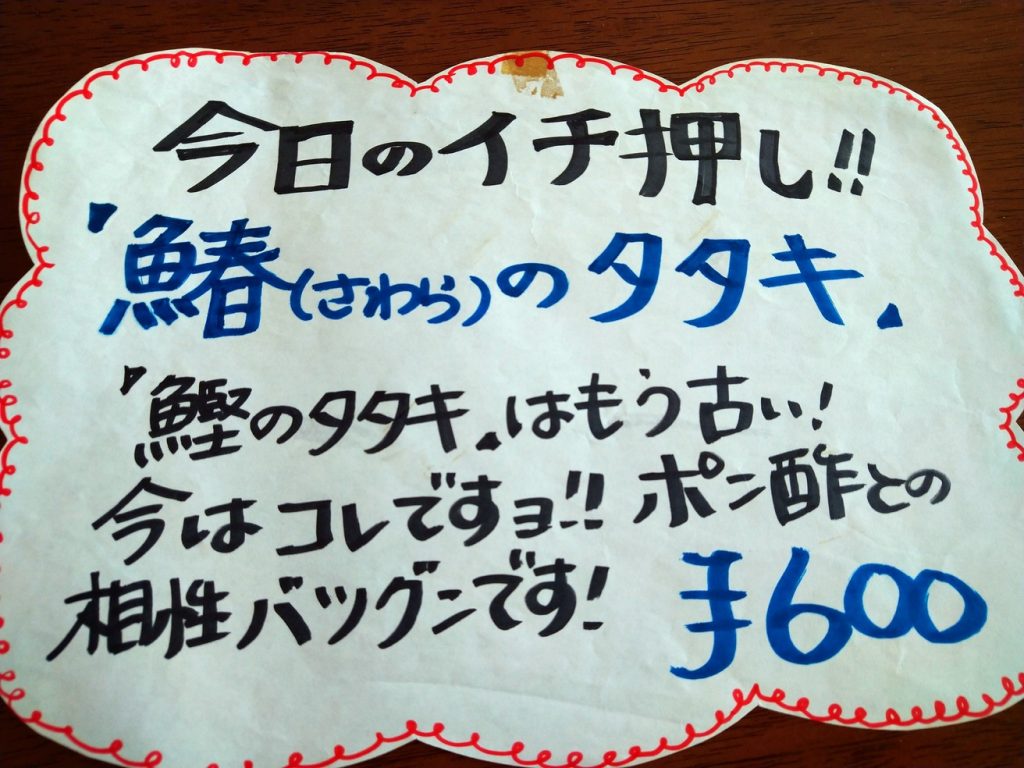 今日のイチ押し!!
「鰆(さわら)のタタキ」
「鰹のタタキ」はもう古い!
今はコレですョ!! ポン酢との
相性バツグンです! ¥600